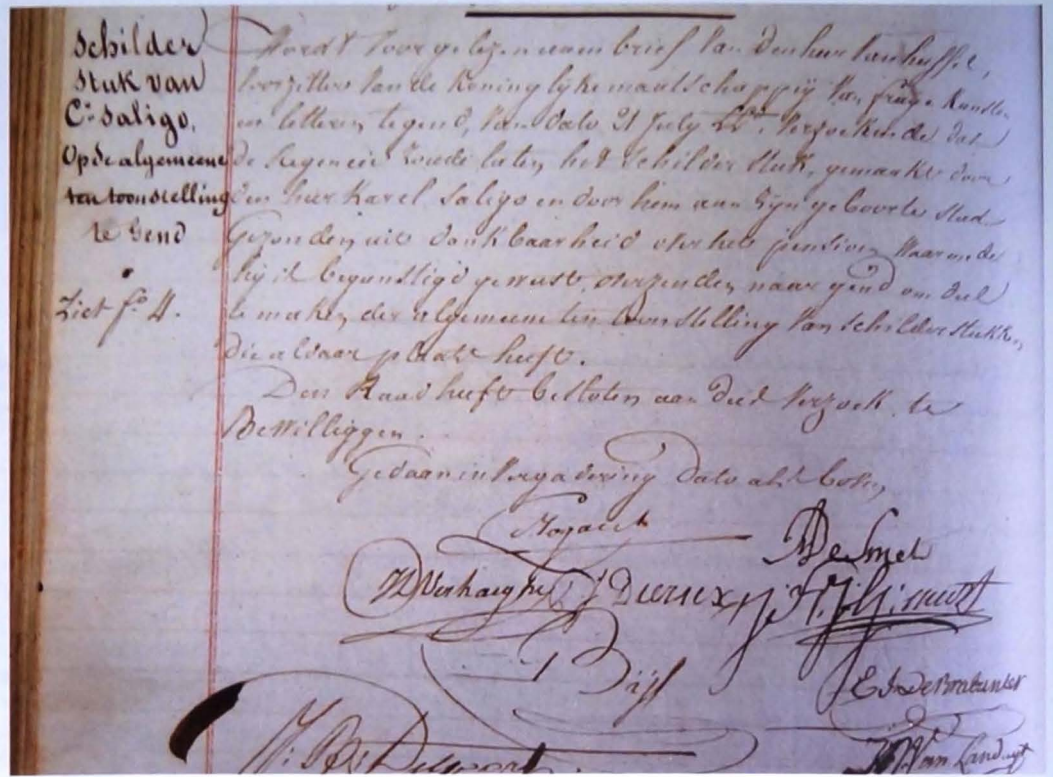 Schilder
Stuk van
C. Saligo,
Op de algemeene
ten toonstelling
te Gend
Ziet f.º 4.
Wordt voorgelezen eenen brief van den heer Van huffel,
voorzitter van de Koninglyke maatschappij van fraije Kunsten
en letteren te gend, van dato 21 July LL. verzoekende dat
de Regencie zoude laten het schilder stuk, gemaakt door
den heer Karel Saligo en door hem aan zijn geboorte stad
Gezonden uit dankbaarheid over het pensioen waarmede
hij is begunstigd geweest, overzenden naar gend om deel
te maken der algemeene ten toonstelling van schilderstukken,
die aldaar plaats heeft.
Den Raad heeft besloten aan dit verzoek te
Bewilliggen.
Gedaan in vergadering dato als boven
DeSmet
Verhaeghe J Dierickx
Bijl
De Brabanter
Van Landuyt